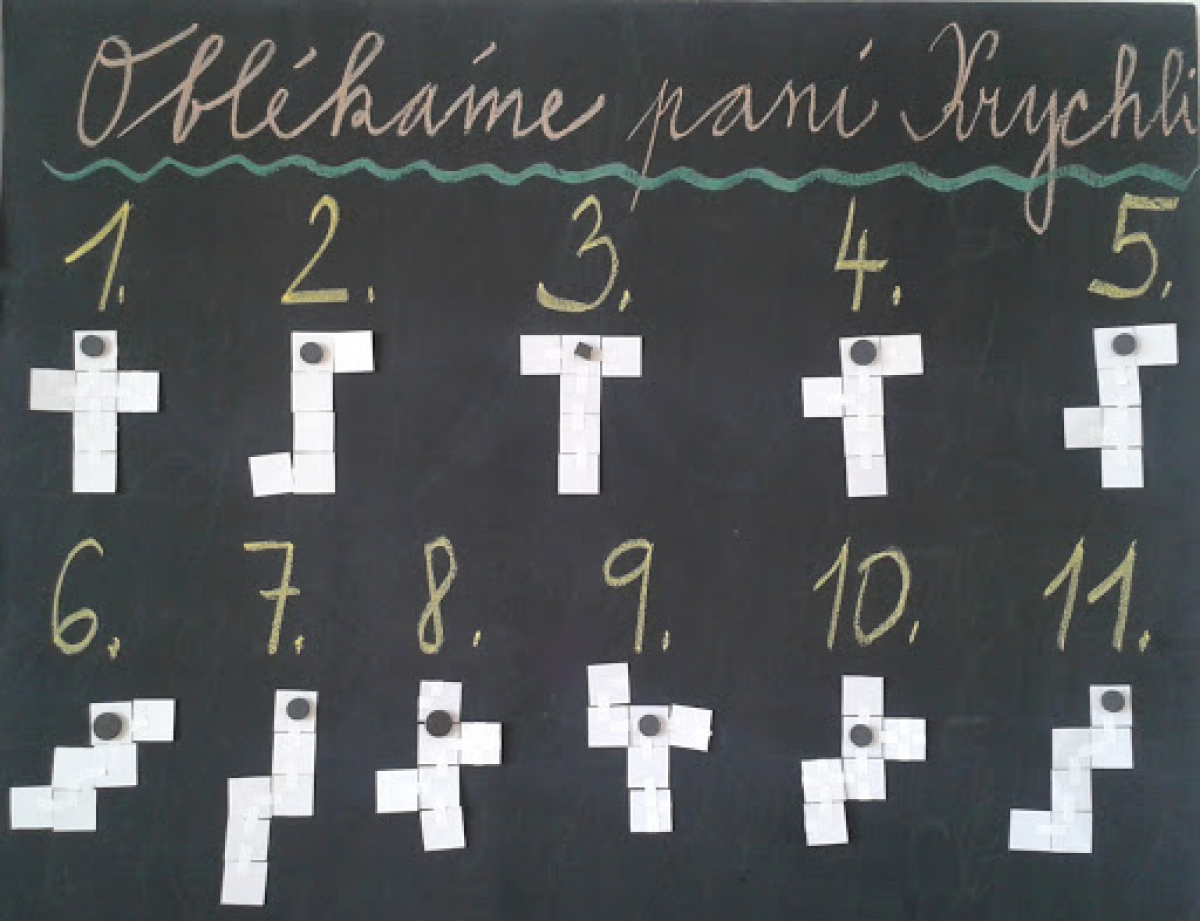 Oblékáme paní Krychli
1. 2. 3. 4. 5.
6. 7. 8. 9. 10. 11.